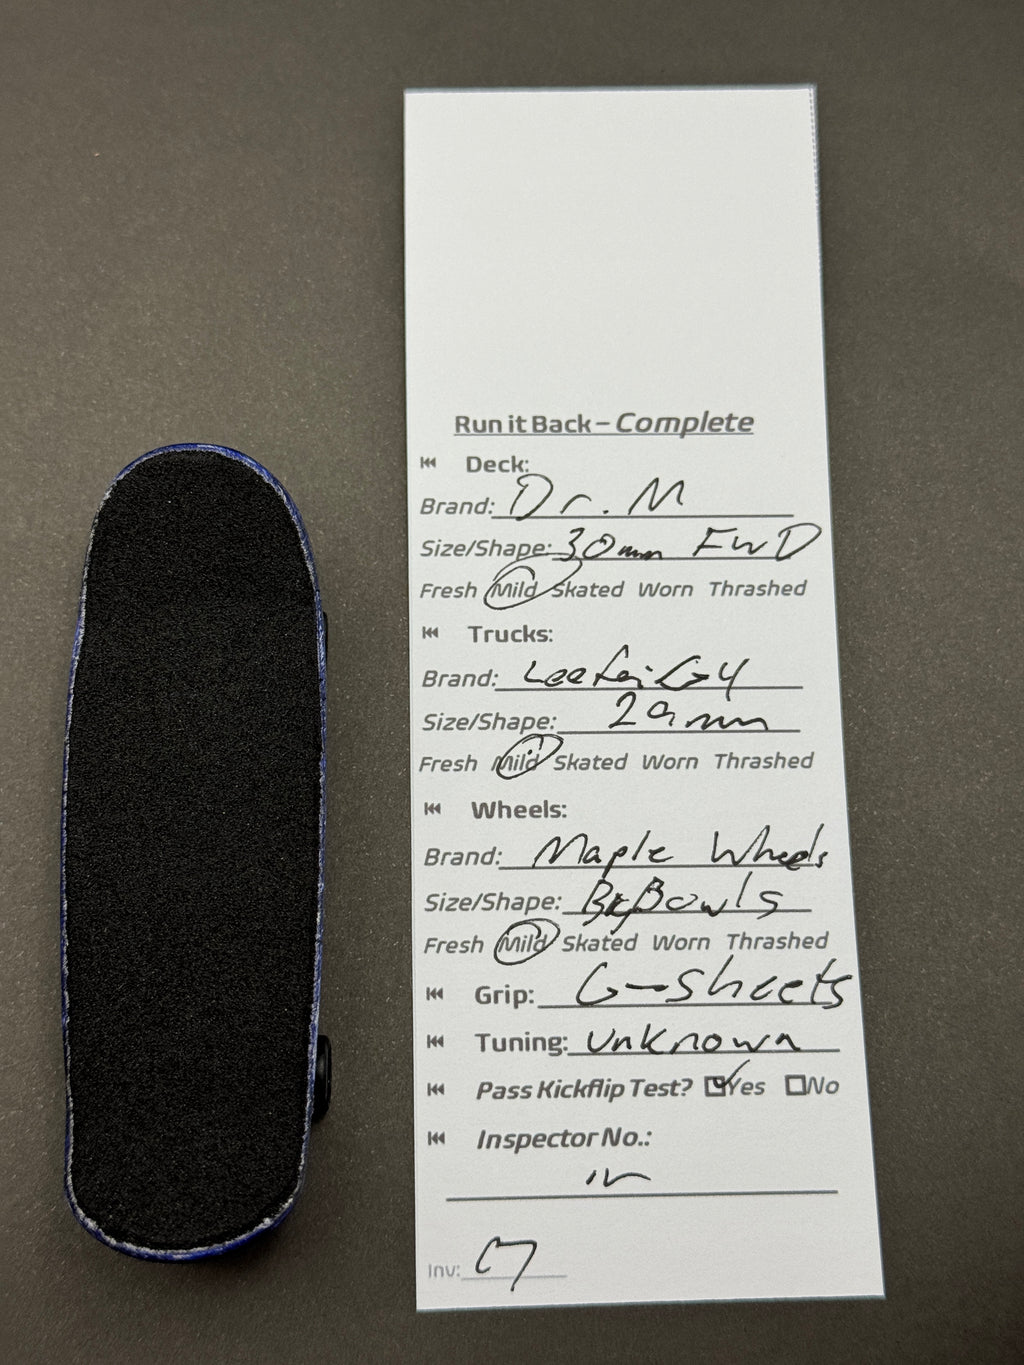 Run it Back – Complete
⏮ Deck:
Brand: Dr. M
Size/Shape: 30mm FWD
Fresh Mild Skated Worn Thrashed
⏮ Trucks:
Brand: Leefai G4
Size/Shape: 29mm
Fresh Mild Skated Worn Thrashed
⏮ Wheels:
Brand: Maple Wheels
Size/Shape: BigBowls
Fresh Mild Skated Worn Thrashed
⏮ Grip: G-Sheets
⏮ Tuning: Unknown
⏮ Pass Kickflip Test? ☑Yes ☐No
⏮ Inspector No.:
Inv: